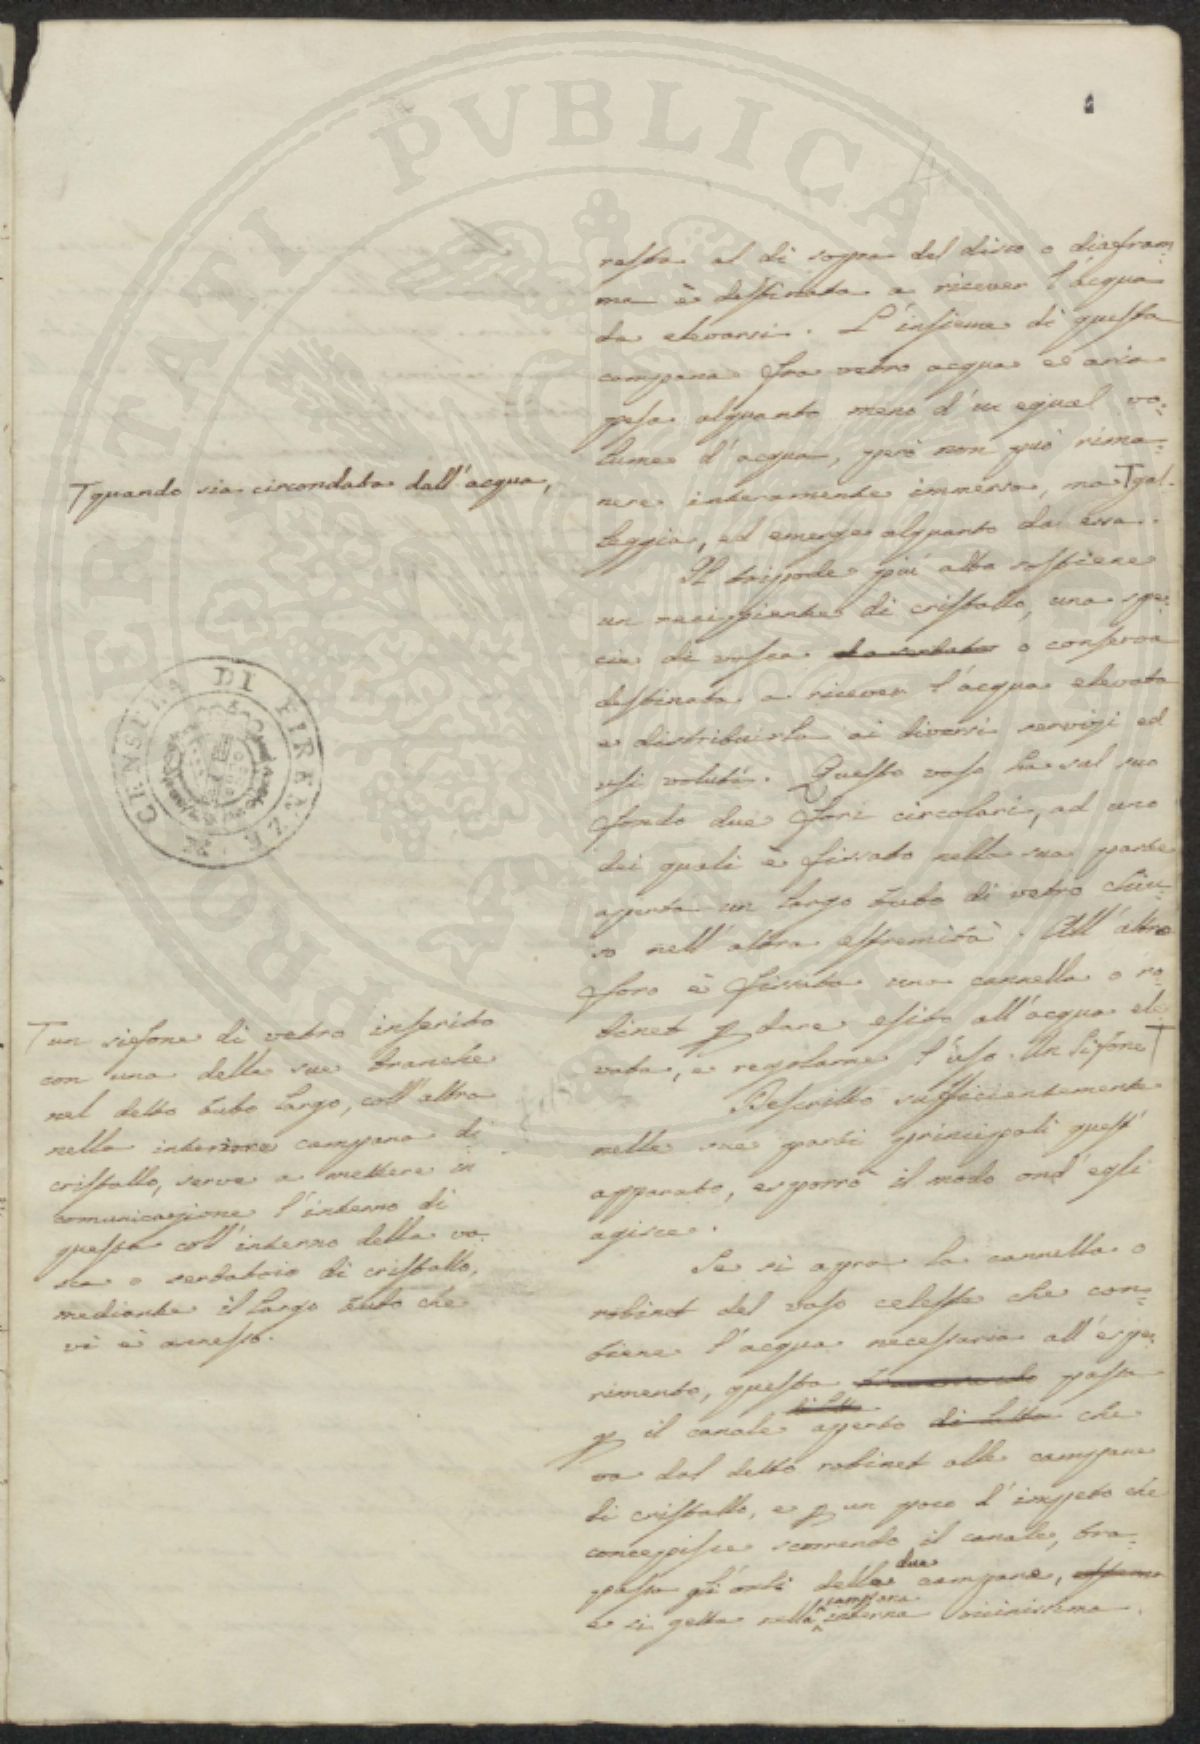 resta al di sopra del disco o diafram
ma è destinata a ricever l'acqua
da elevarsi. L'insieme di questa
campana fra vetro acqua ed aria
pesa alquanto meno d'un egual vo-
lume d'acqua, però non può rima-
nere interamente immersa, ma Tgal-
leggia, ed emerge alquanto da essa.
Tquando sia circondata dall'acqua,
Il tripode più alto sostiene
un recipiente di cristallo, una spe-
cie di vasca o conserva
destinata a ricever l'acqua elevata
e distribuirla ai diversi servizi ed
usi voluti. Questo vaso ha sul suo
fondo due fori circolari, ad uno
dei quali è fissato nella sua parte
aperta un largo tubo di vetro chiu-
so nell'altra estremità. All'altro
foro è fissata una cannella o ro-
binet p dare esito all'acqua ele
vata, e regolarne l'uso. Un Sifone T
T un sifone di vetro inserito
con una delle sue branche
nel detto tubo largo, coll'altra
nella interiore campana di
cristallo, serve a mettere in
comunicazione l'interno di
questa coll'interno della va-
sca o serbatoio di cristallo,
mediante il largo tubo che
vi è annesso.
Descritto sufficientemente
nelle sue parti principali quest'
apparato, esporrò il modo ond'egli
agisce.
Se si apra la cannella o
robinet del vaso celeste che con-
tiene l'acqua necessaria all'espe-
rimento, questa passa
p il canale aperto di latta che
va dal detto robinet alle campane
di cristallo, e p un poco d'impeto che
concepisce scorrendo il canale, tra-
passa gli orli delle due campane,
e si getta nella campana interna vicinissima.
DI FIRENZE
PROSPERITATI PVBLICAE